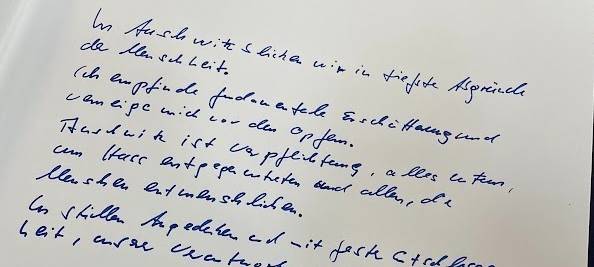 In Auschwitz blicken wir in tiefste Abgründe
der Menschheit.
Ich empfinde fundamentale Erschütterung und
verneige mich vor den Opfern.
Auschwitz ist Verpflichtung, alles zu tun,
um Hass entgegenzutreten und allen, die
Menschen entmenschlichen.
Im stillen Angedenken und mit fester
heit, unsere